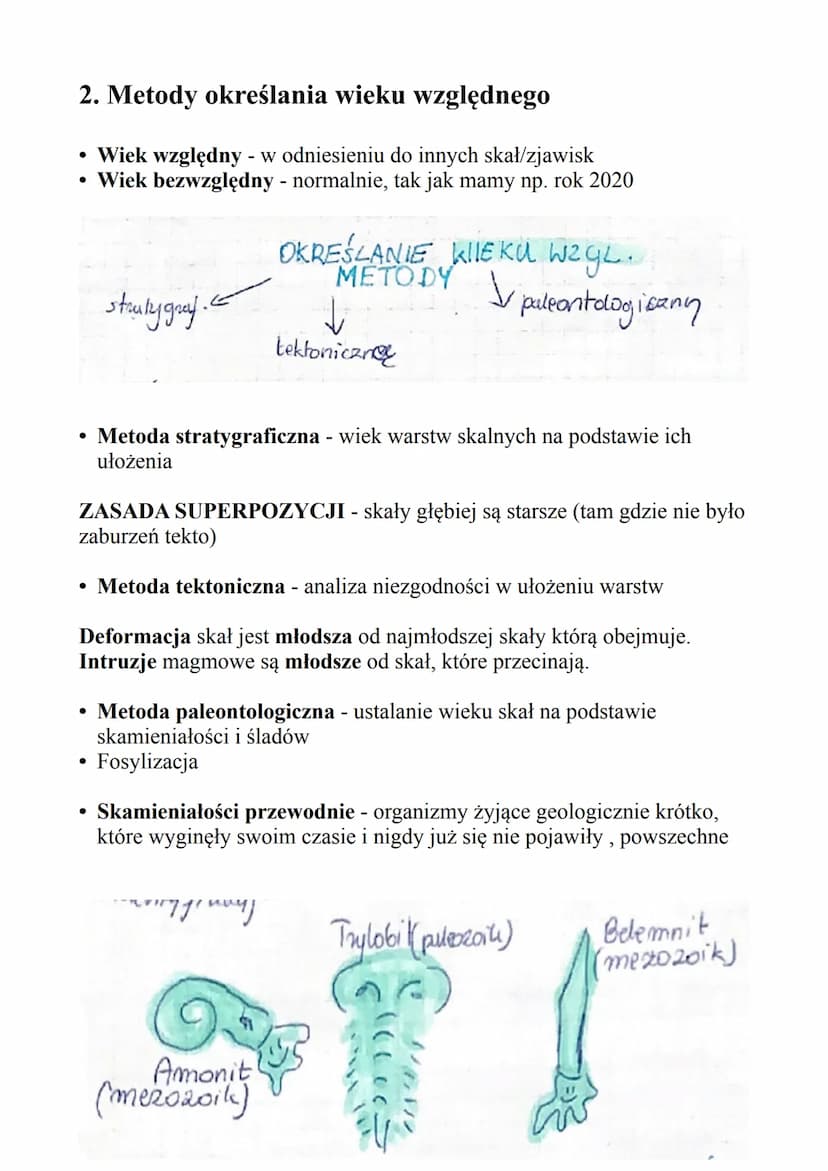 2. Metody określania wieku względnego
• Wiek względny - w odniesieniu do innych skał/zjawisk
• Wiek bezwzględny - normalnie, tak jak mamy np. rok 2020
OKREŚLANIE WIEKU WZGL.
METODY
stratygraf.
paleontologiczny
tektoniczne
• Metoda stratygraficzna - wiek warstw skalnych na podstawie ich
ułożenia
ZASADA SUPERPOZYCJI - skały głębiej są starsze (tam gdzie nie było
zaburzeń tekto)
• Metoda tektoniczna - analiza niezgodności w ułożeniu warstw
Deformacja skał jest młodsza od najmłodszej skały którą obejmuje.
Intruzje magmowe są młodsze od skał, które przecinają.
• Metoda paleontologiczna - ustalanie wieku skał na podstawie
skamieniałości i śladów
• Fosylizacja
• Skamieniałości przewodnie - organizmy żyjące geologicznie krótko,
które wyginęły swoim czasie i nigdy już się nie pojawiły , powszechne
Trylobit (paleozoik)
Belemnit
(mezozoik)
Amonit
(mezozoik)